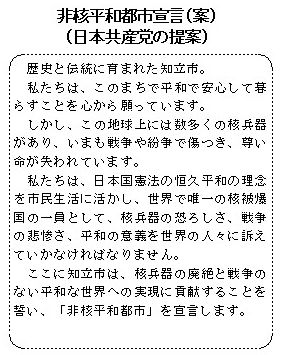 非核平和都市宣言(案)
(日本共産党の提案)
歴史と伝統に育まれた知立市。
私たちは、このまちで平和で安心して暮
らすことを心から願っています。
しかし、この地球上には数多くの核兵器
があり、いまも戦争や紛争で傷つき、尊い
命が失われています。
私たちは、日本国憲法の恒久平和の理念
を市民生活に活かし、世界で唯一の核被爆
国の一員として、核兵器の恐ろしさ、戦争
の悲惨さ、平和の意義を世界の人々に訴え
ていかなければなりません。
ここに知立市は、核兵器の廃絶と戦争の
ない平和な世界への実現に貢献することを
誓い、「非核平和都市」を宣言します。